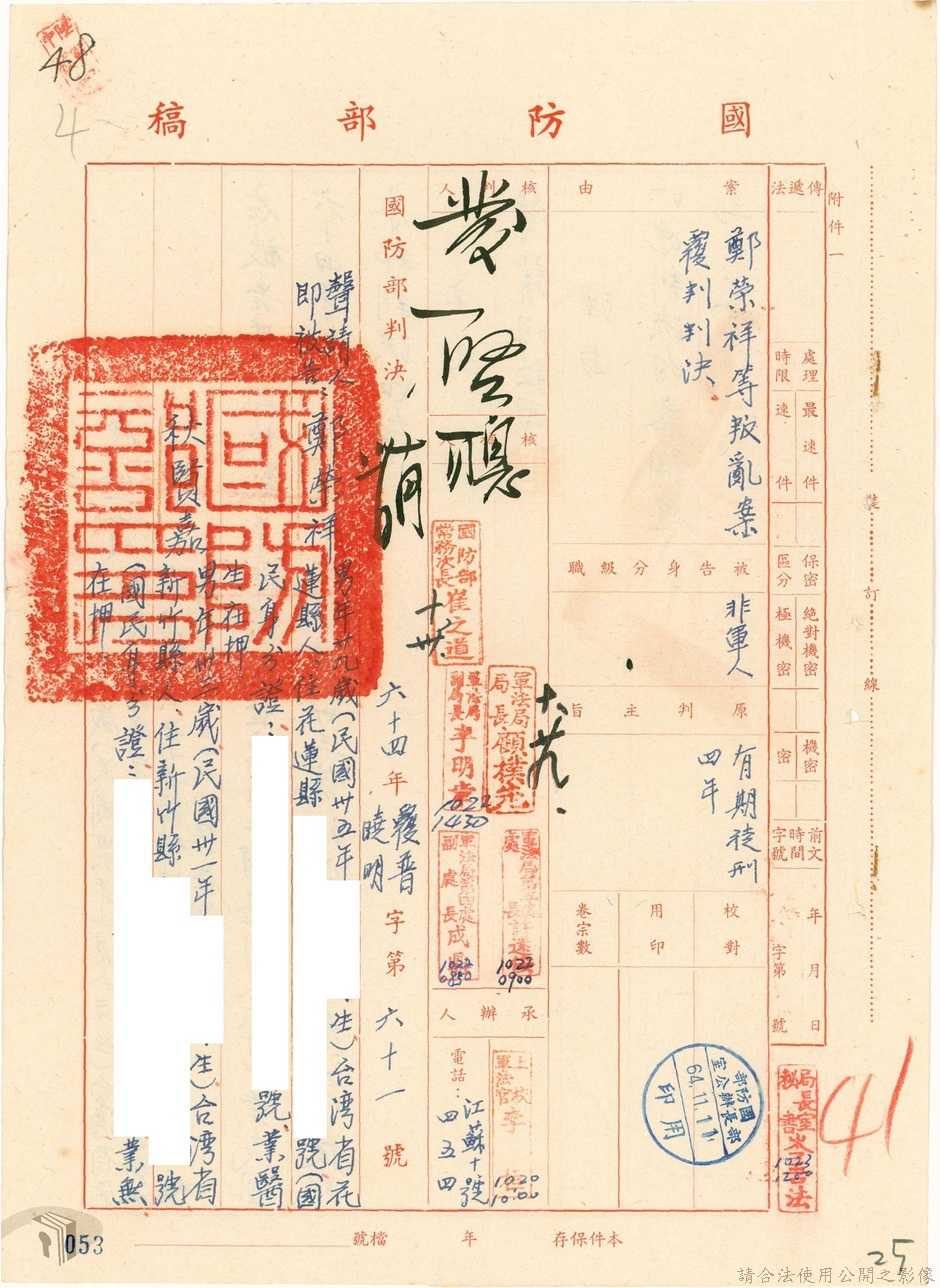 48
4
國防部稿
附件一
傳遞法
處理時限
最速件
速件
保密區分
絕對機密
極機密
機密
密
前文時間字號
年月日
字第號
案由
鄭榮祥等叛亂案
覆判判決
被告身分級職
非軍人
原判主旨
有期徒刑
四年
校對
用印
卷宗數
核判人
核
國防部
常務次長崔之道
軍法局
局長顧樸先
軍法局
副局長李明
1022
1430
1022
0900
1022
0850
承辦人
上校
軍法官李
1020
1000
電話：
江蘇十號
四五四
國防部判決
六十四年
覆普
曉明
字第六十一號
聲請人
即被告：鄭榮祥
男年廿九歲（民國卅五年
生）台湾省花
蓮縣人、住花蓮縣
號（國
民身分證：
號業醫
生在押
秋賢嘉
男年卅三歲（民國卅一年
生）台湾省
新竹縣人、住新竹縣
號
（國民身分證：
業無
在押
國防部
部長辦公室
64.11.11
用印
局長室
秘書
1023
1200
41
裝訂線
053
檔號
年
本件保存
25
請合法使用公開之影像